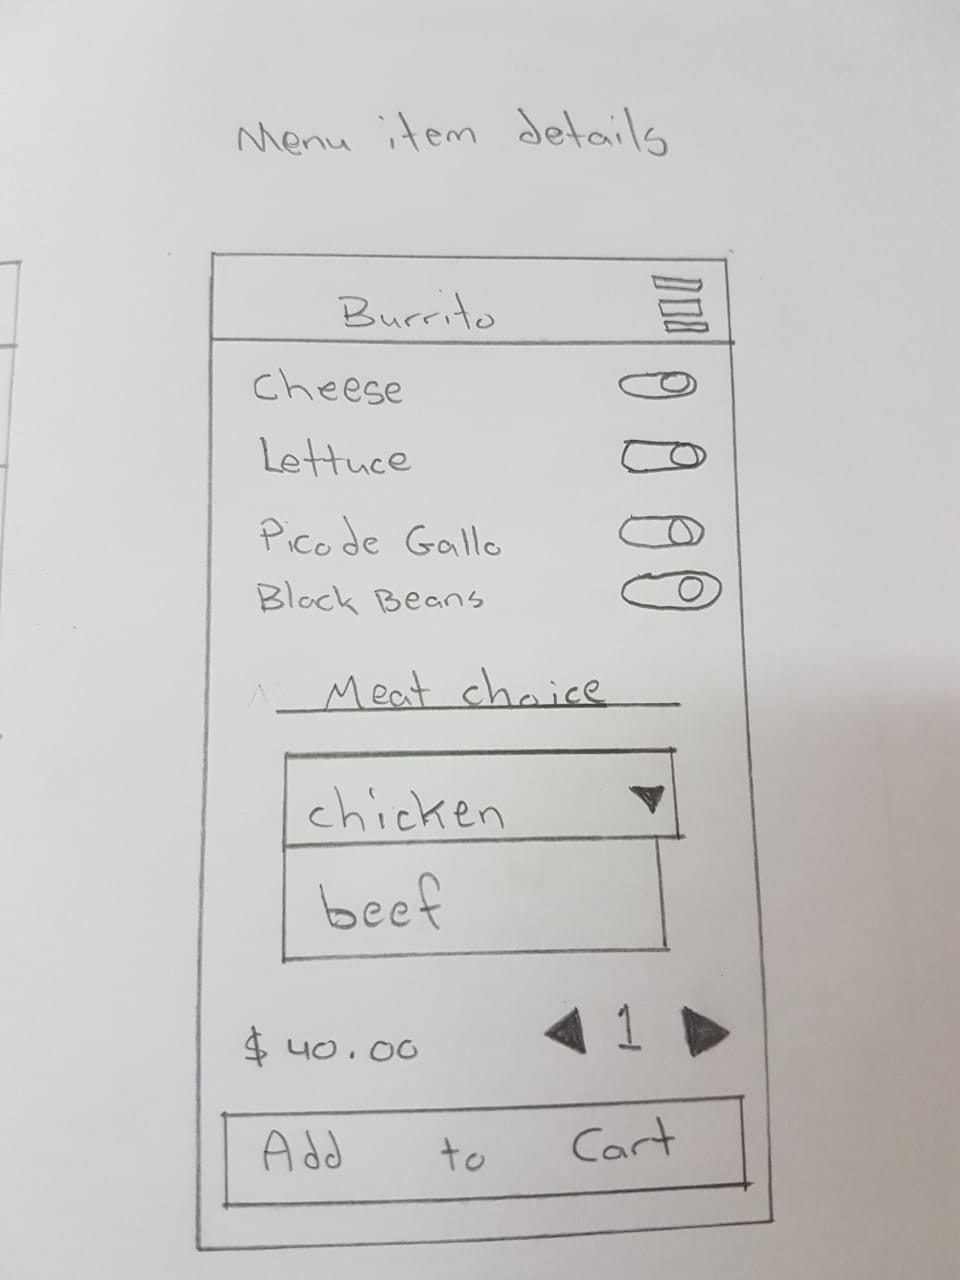 Menu item details
Burrito
Cheese
Lettuce
Pico de Gallo
Black Beans
Meat choice
chicken
beef
$ 40.00 1
Add to Cart